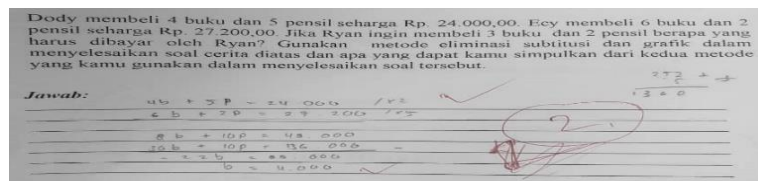 Dody membeli 4 buku dan 5 pensil seharga Rp. 24.000,00. Ecy membeli 6 buku dan 2
pensil seharga Rp. 27.200,00. Jika Ryan ingin membeli 3 buku dan 2 pensil berapa yang
harus dibayar oleh Ryan? Gunakan metode eliminasi subtitusi dan grafik dalam
menyelesaikan soal cerita diatas dan apa yang dapat kamu simpulkan dari kedua metode
yang kamu gunakan dalam menyelesaikan soal tersebut.
Jawab:
4b + 5p = 24 000
6 b + 2p = 27.200
8 b + 10p = 48.000
30 b + 10p = 136 000 -
- 22b = 88.000
b = 4.000
2.